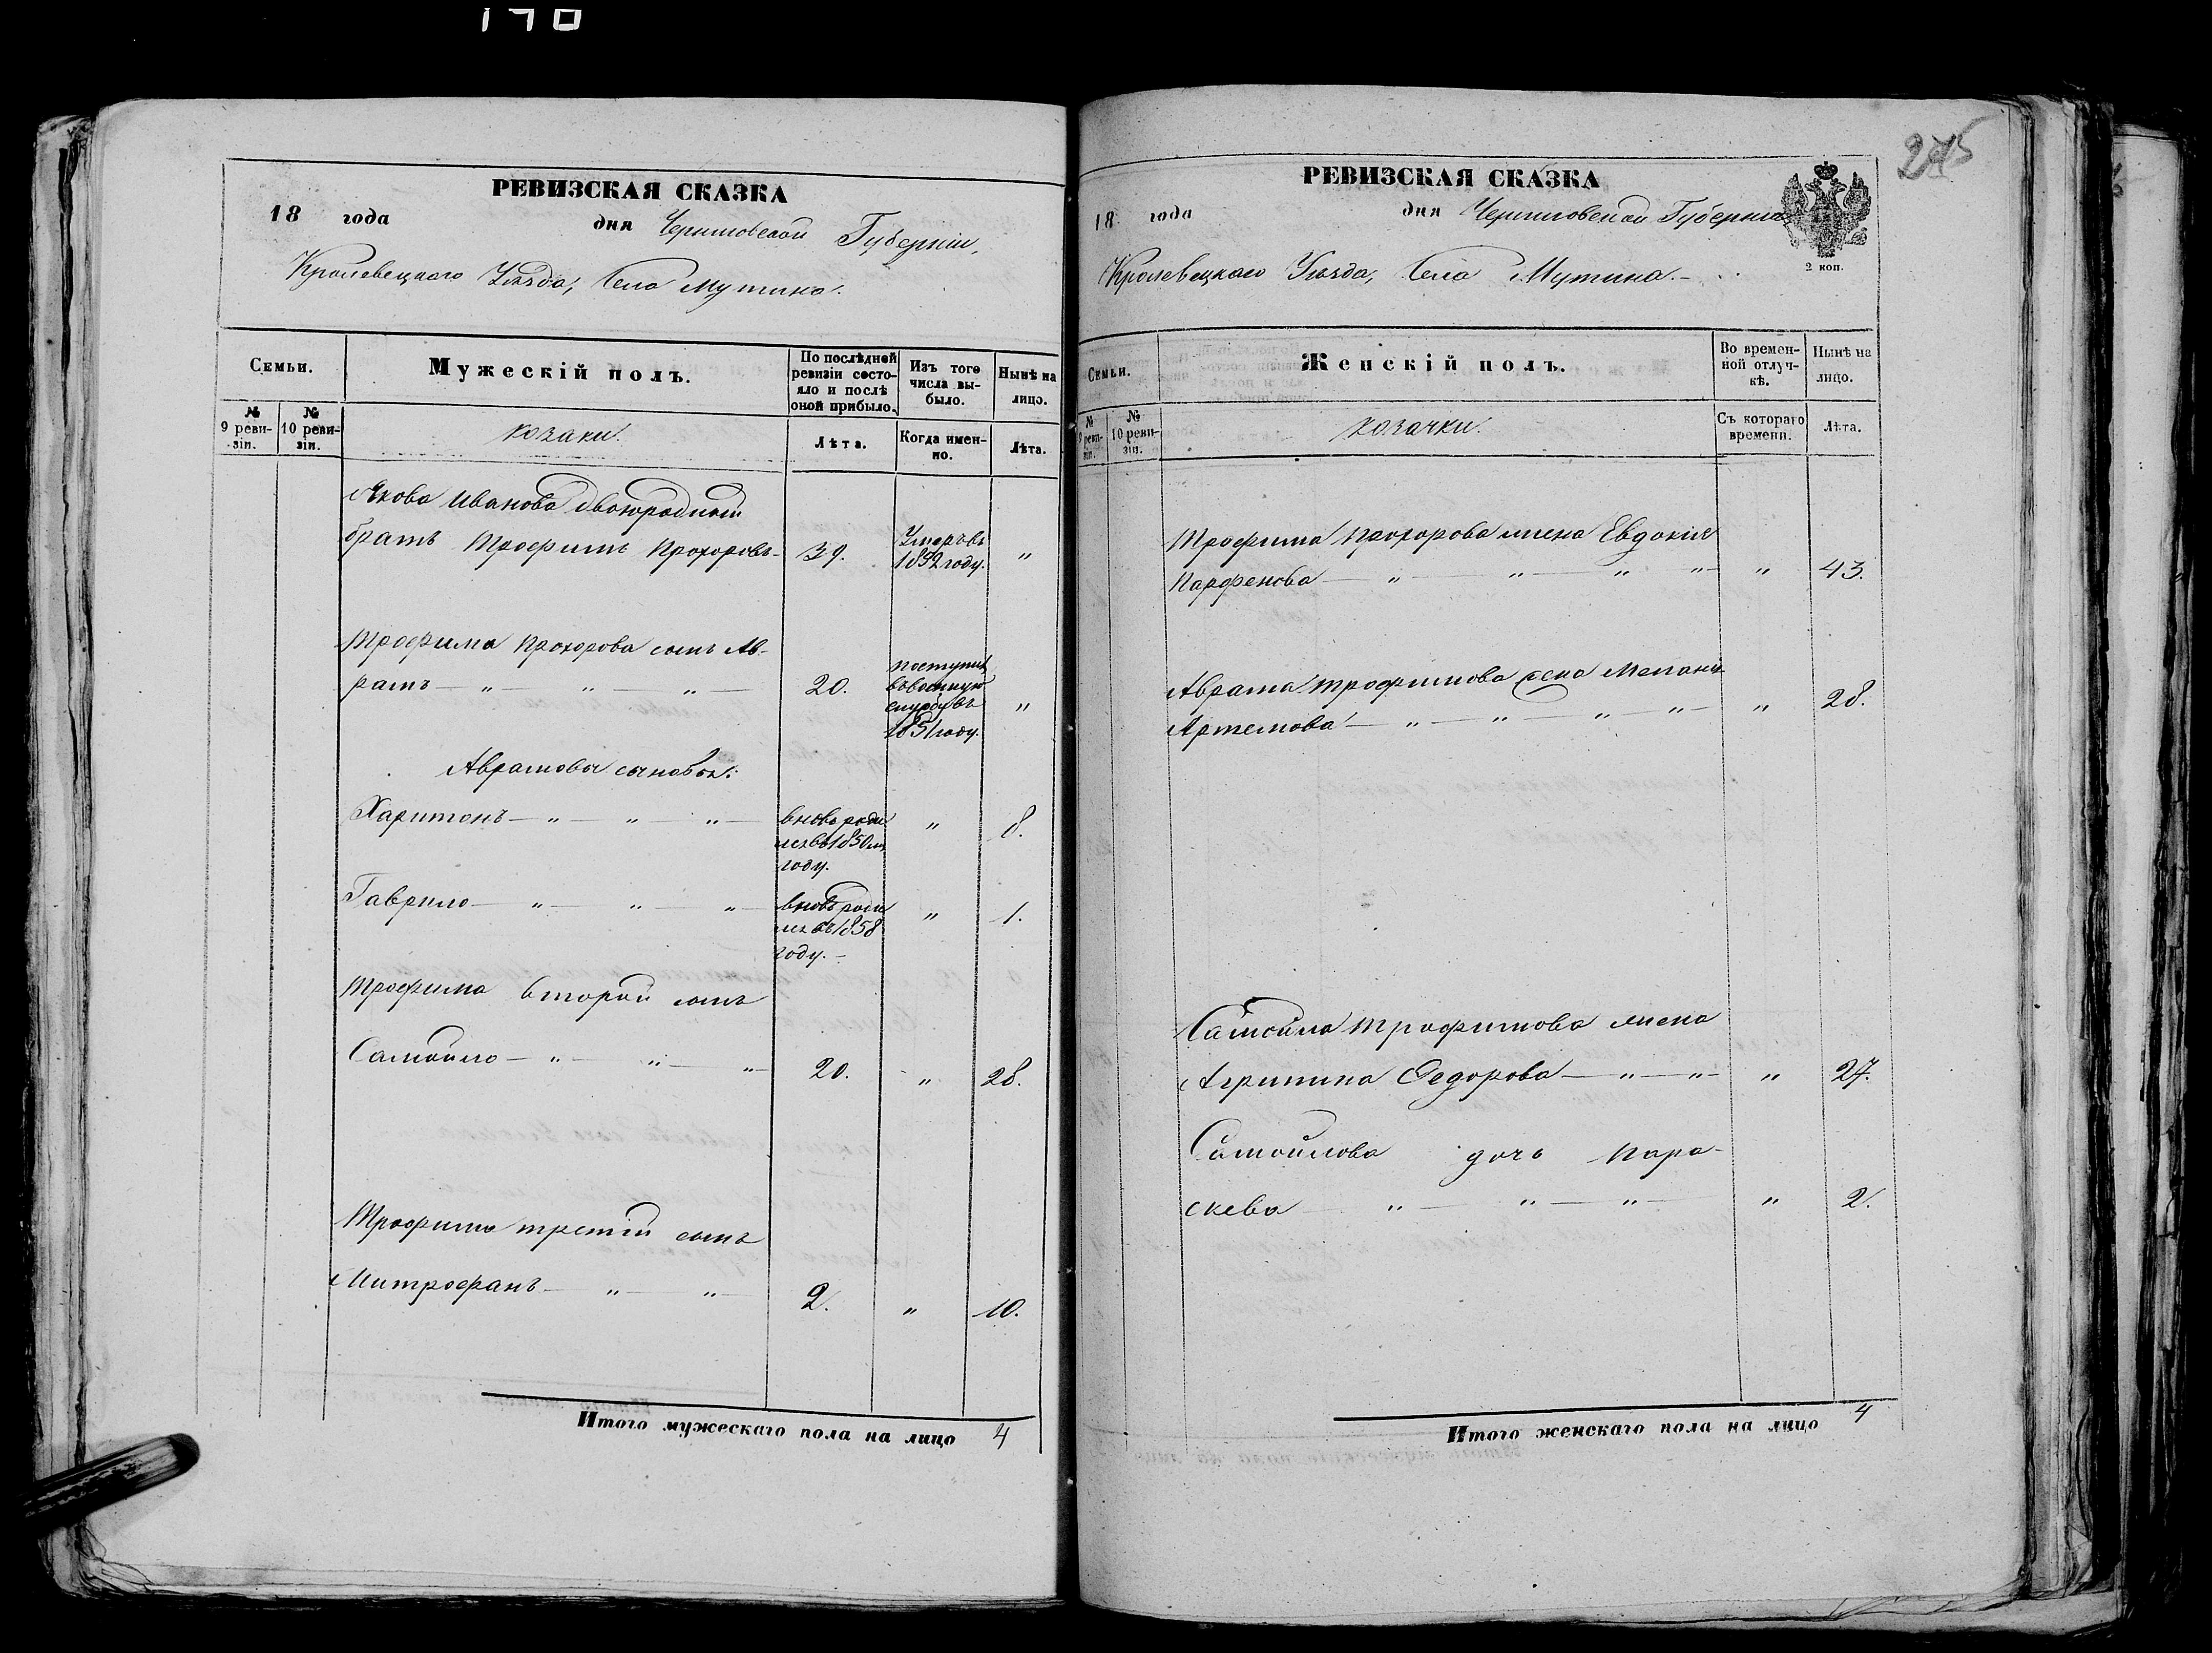 РЕВИЗСКАЯ СКАЗКА
18 года дня Черниговской Губерніи,
Кролевецкаго Уѣзда, Села Мутина.
Семьи.
Мужескій полъ.
По послѣдней ревизіи состояло и послѣ оной прибыло.
Изъ того числа выбыло.
Нынѣ на лицо.
№ 9 ревизіи.
№ 10 ревизіи.
козаки.
Лѣта.
Когда именно.
Лѣта.
Якова Иванова двоюродный
братъ Трофимъ Прохоровъ 39. Умеръ въ 1852 году. "
Трофима Прохорова сынъ Ав-
рамъ — " — " — " — 20. поступил въ военную службу въ 1851 году. "
Аврамовы сыновья:
Харитонъ — " — " — " — вновь роди лся въ 1850 м году. " 8.
Гаврило — " — " — " — вновь роди лся въ 1858 году. — " 1.
Трофима второй сынъ
Самойло — " — " — " — 20. " 28.
Трофима третій сынъ
Митрофанъ — " — " — 2. " 10.
Итого мужескаго пола на лицо 4
245
РЕВИЗСКАЯ СКАЗКА
18 года дня Черниговской Губерніи
2 коп.
Кролевецкаго Уѣзда, Села Мутина. —
Семьи.
Женскій полъ.
Во временной отлучкѣ.
Нынѣ на лицо.
№ 9 ревизіи.
№ 10 ревизіи.
козачки.
Съ котораго времени.
Лѣта.
Трофима Прохорова жена Евдокія
Парфенова — " — " — " — " — " 43.
Аврама Трофимова жена Меланья
Артемова — " — " — " — " — " 28.
Самойла Трофимова жена
Агрипина Федорова — " — " — " 27.
Самойлова дочь Пара-
скева — " — " — " — " 2.
Итого женскаго пола на лицо 4